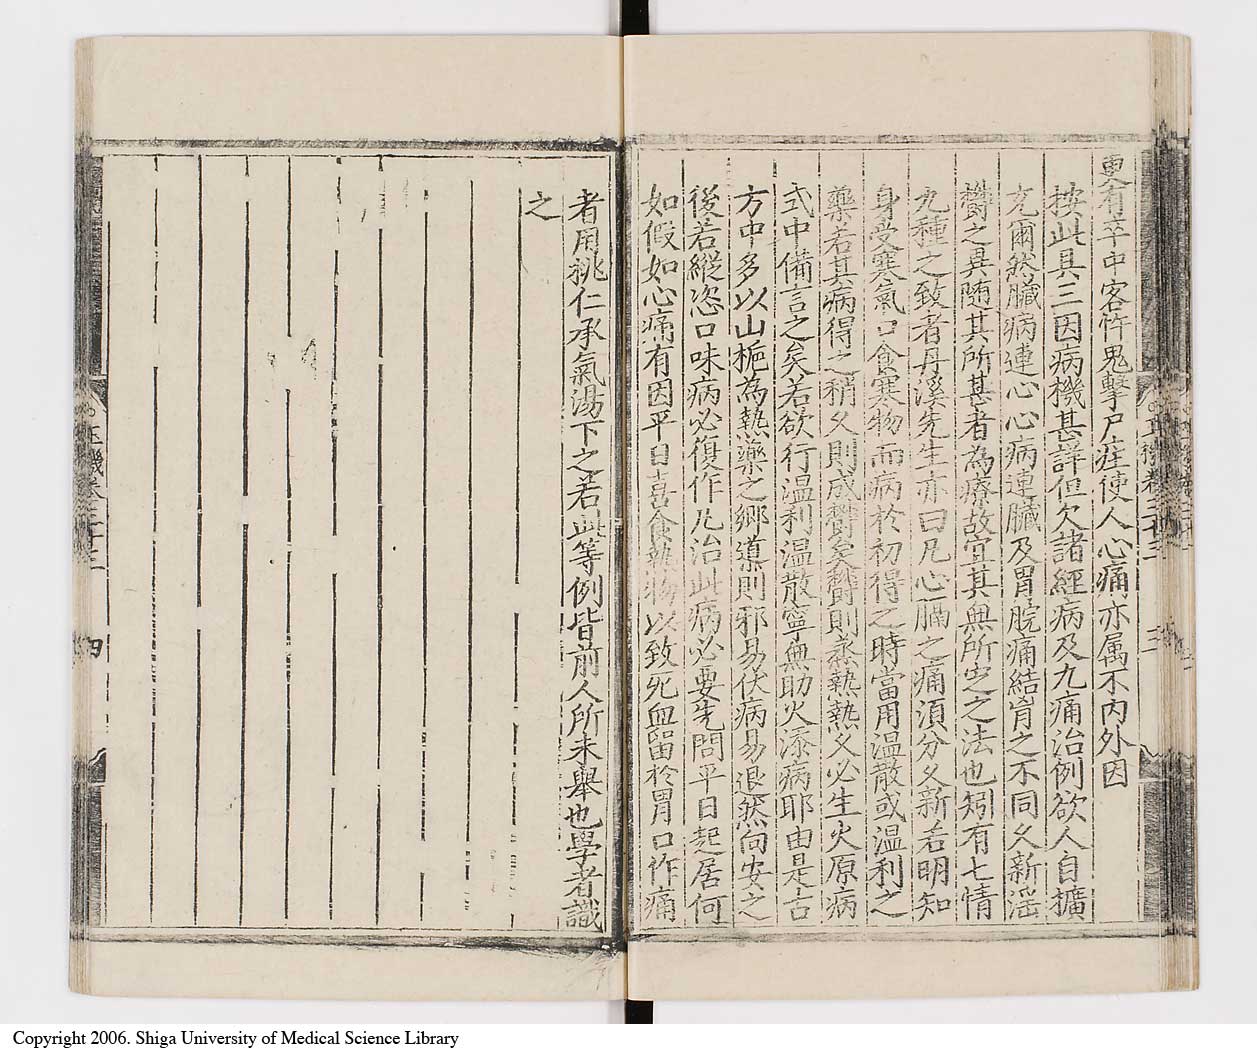 更有卒中客忤鬼擊尸疰使人心痛亦属不内外因
按此具三因病機甚詳但欠諸經病及九痛治例欲人自擴
充爾然臟病連心心病連臟及胃脘痛結胷之不同久新滛
欝之異随其所甚者為療故宜其與所宐之法也矧有七情
九種之致者丹溪先生亦曰凡心膈之痛湏分久新若明知
身受寒氣口食寒物而病於初得之時當用温散或温利之
藥若其病得之稍乆則成欝矣欝則蒸熱熱乆必生火原病
式中備言之矣若欲行温利温散寧無助火添病耶由是古
方中多以山梔為熱藥之郷導則邪易伏病易退然向安之
後若縱恣口味病必復作凡治此病必要先問平日起居何
如假如心痛有因平日喜食熱物以致死血留於胃口作痛
者用桃仁承氣湯下之若此等例皆前人所未舉也學者識
之
玉機卷三十三
四
Copyright 2006. Shiga University of Medical Science Library